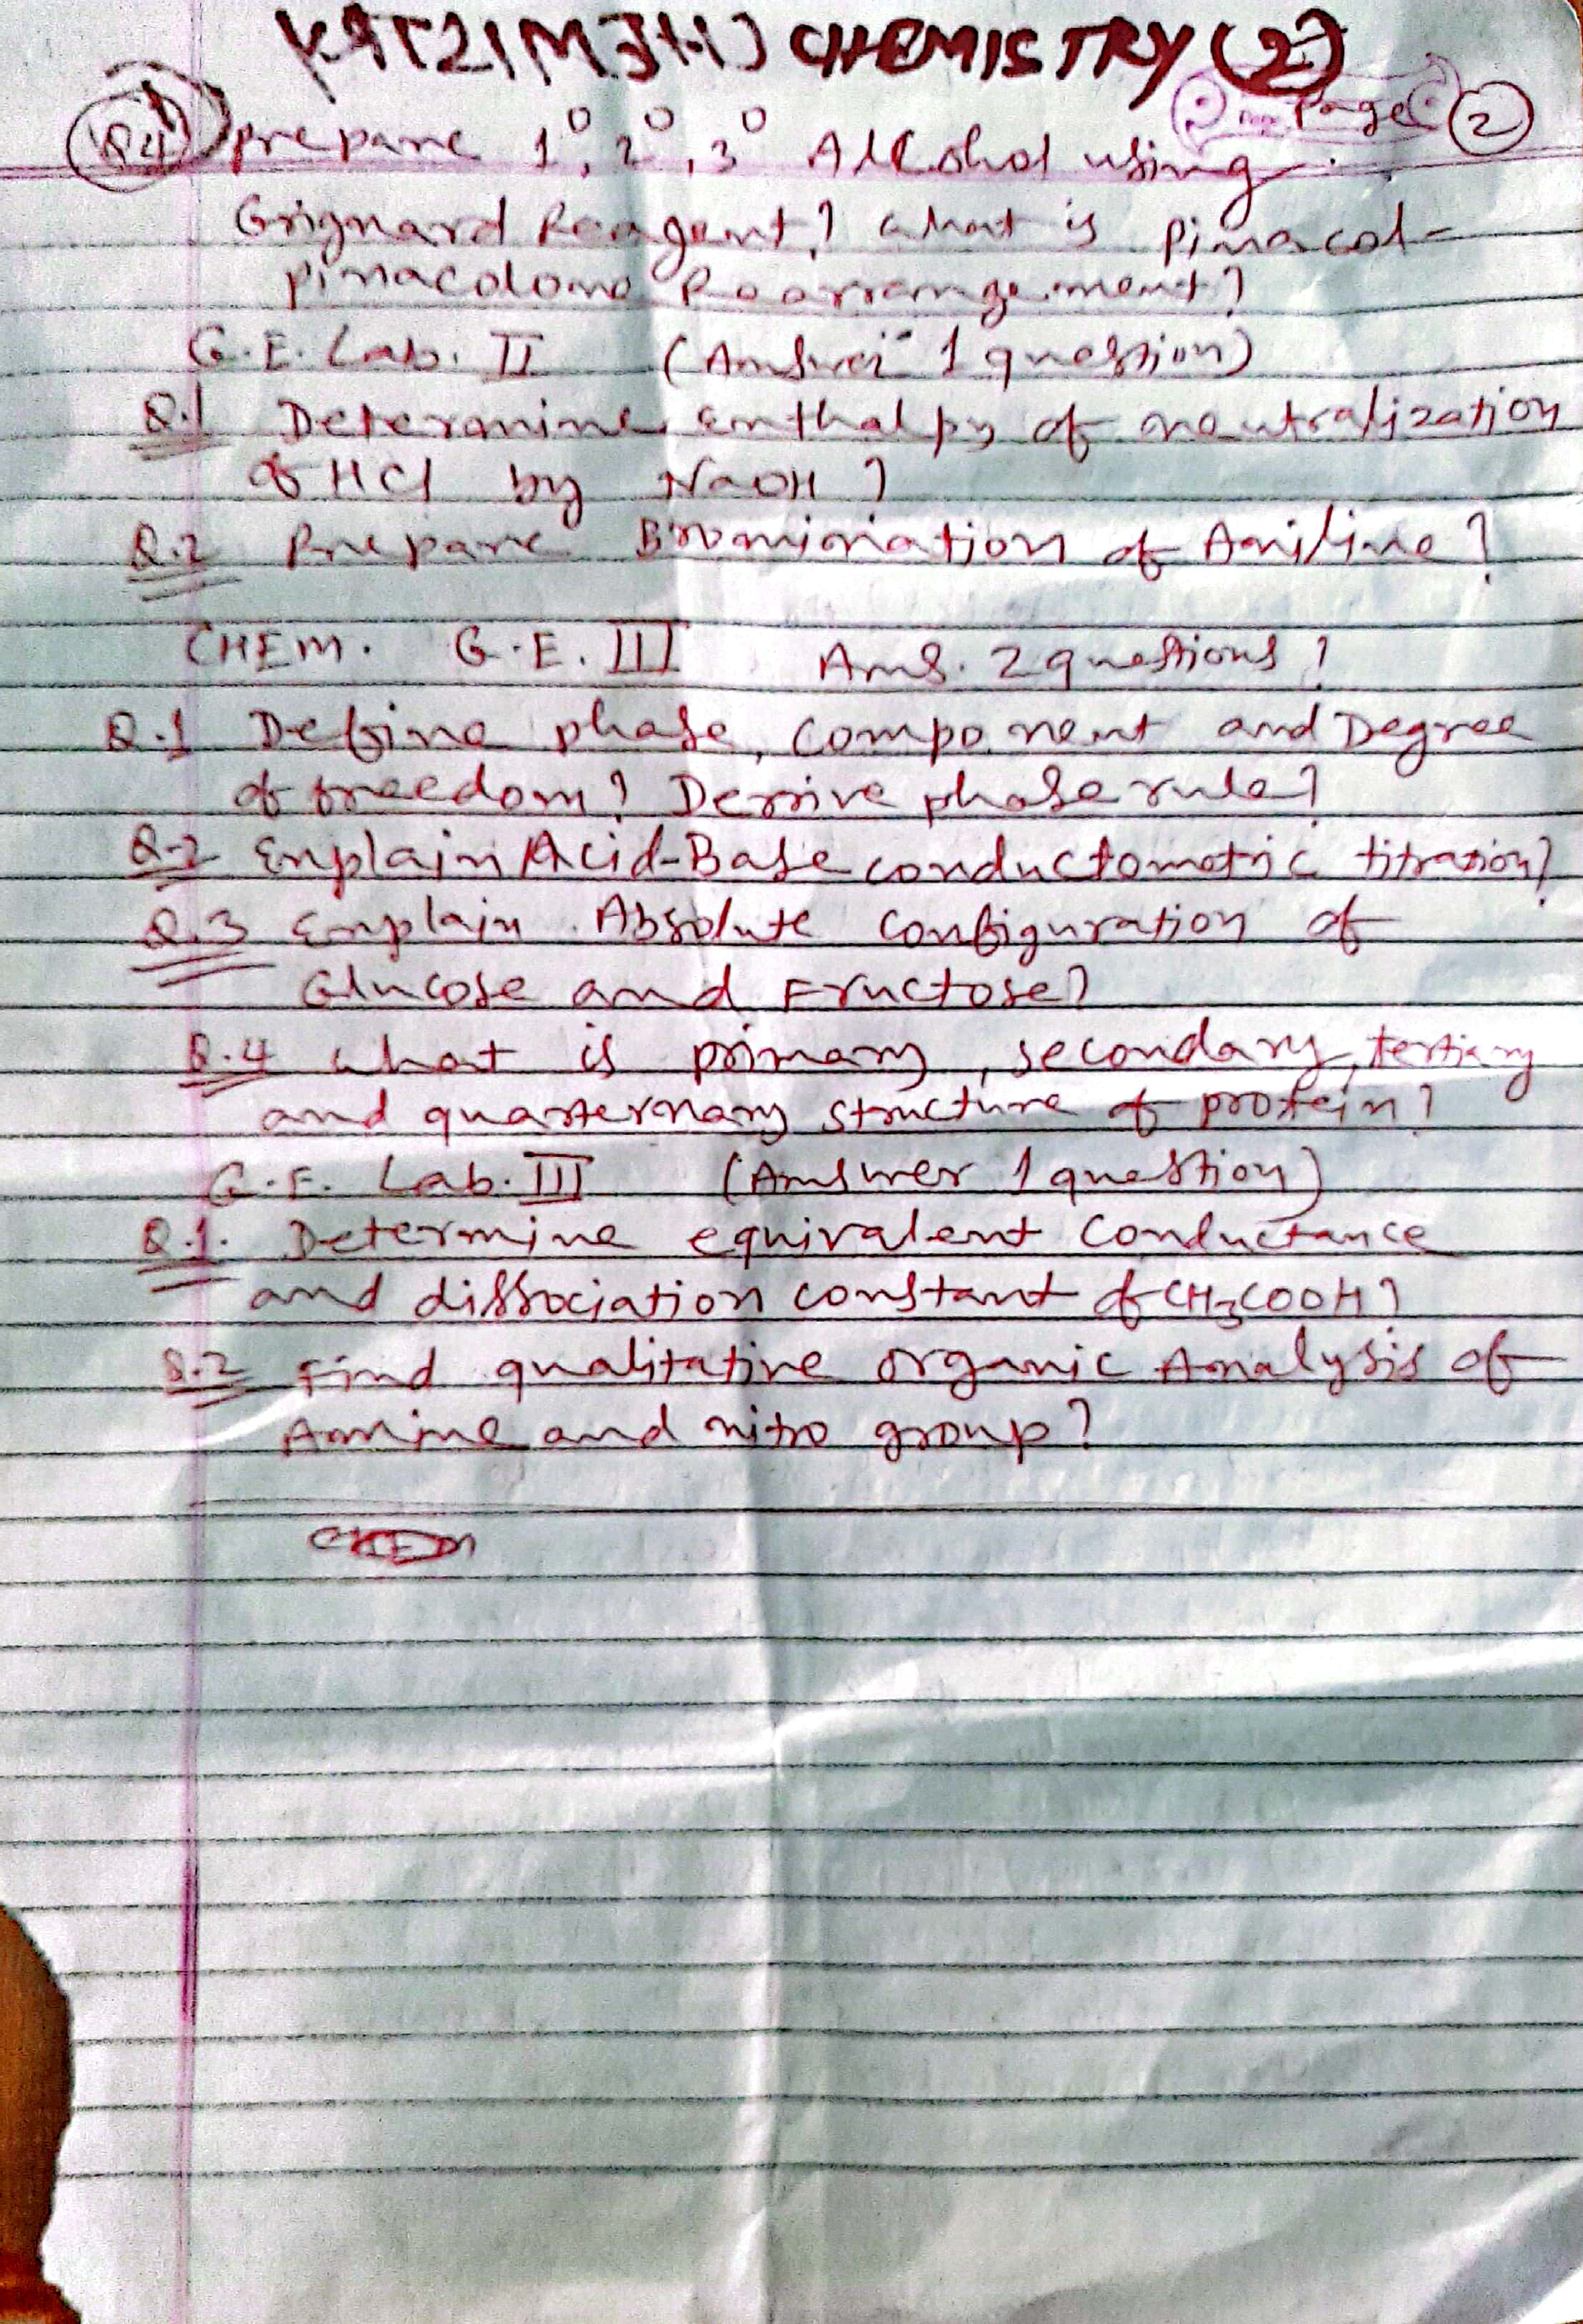 CHEMISTRY (2)
Page 2
Q4 prepare 1°, 2°, 3° Alcohol using
Grignard Reagent? what is pinacol-
pinacolone Rearrangement?
G.E. Lab. II (Answer 1 question)
Q.1 Determine enthalpy of neutralization
of HCl by NaOH?
Q.2 Prepare Bromination of Aniline?
CHEM. G.E. III Ans. 2 questions?
Q.1 Define phase, component and Degree
of freedom? Derive phase rule?
Q.2 Explain Acid-Base conductometric titration?
Q.3 Explain Absolute configuration of
Glucose and Fructose?
Q.4 what is primary, secondary, tertiary
and quarternary structure of protein?
G.E. Lab. III (Answer 1 question)
Q.1. Determine equivalent Conductance
and dissociation constant of CH3COOH?
Q.2 Find qualitative organic Analysis of
Amine and nitro group?